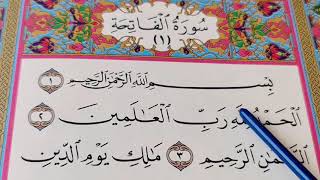 سُورَةُ الْفَاتِحَةِ
(١)
بِسْمِ اللَّهِ الرَّحْمَٰنِ الرَّحِيمِ ١
الْحَمْدُ لِلَّهِ رَبِّ الْعَالَمِينَ ٢
الرَّحْمَٰنِ الرَّحِيمِ ٣ مَالِكِ يَوْمِ الدِّينِ